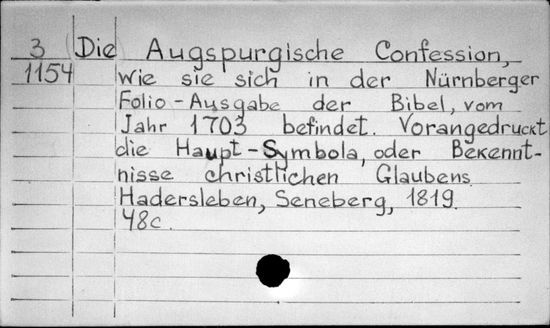 3 Die Augspurgische Confession,
1154 wie sie sich in der Nürnberger
Folio-Ausgabe der Bibel, vom
Jahr 1703 befindet. Vorangedruckt
die Haupt-Symbola, oder Bekennt-
nisse christlichen Glaubens.
Hadersleben, Seneberg, 1819.
48c.